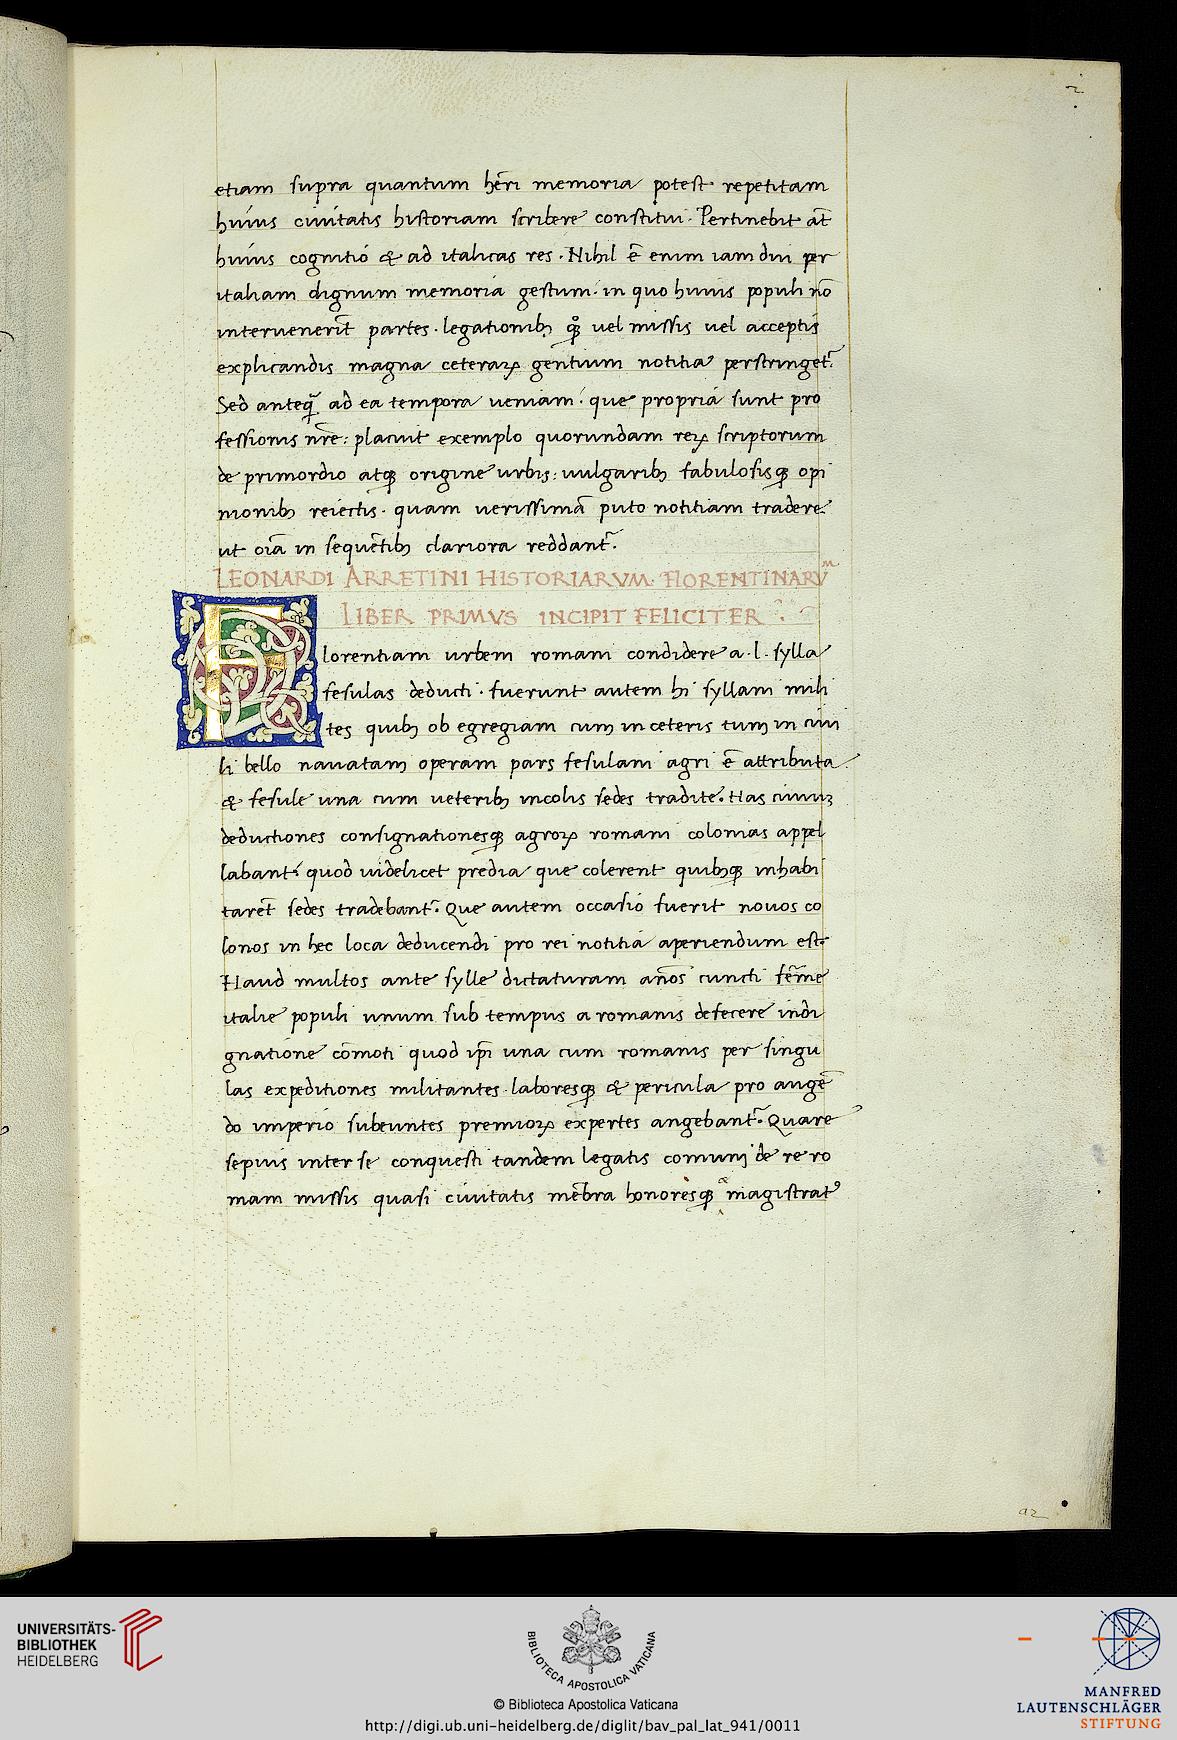 2
etiam supra quantum hẽri memoria potest repetitam
huius ciuitatis historiam scribere constitui. Pertinebit aũt
huius cognitió & ad italicas res. Nihil ẽ enim iam diu per
italiam dignum memoria gestum: in quo huius populi nõ
interuenerĩt partes. legationibꝫ qꝫ uel missis uel acceptis
explicandis magna ceteraꝝ gentium notitia perstringet̃.
Sed anteq̃ ad ea tempora ueniam: que propria sunt pro
fessionis nr̃e: placuit exemplo quorundam reꝝ scriptorum
de primordio atqꝫ origine urbis: uulgaribꝫ fabulosisqꝫ opi
nionibꝫ reiectis. quam uerissimã puto notitiam tradere.
ut oĩa in sequẽtibꝫ clariora reddant̃.
LEONARDI ARRETINI HISTORIARVM FLORENTINARVM
LIBER PRIMVS INCIPIT FELICITER
Florentiam urbem romani condidere a. l. sylla
fesulas deducti. fuerunt autem hi syllani mili
tes quibꝫ ob egregiam cum in ceteris tum in ciui
li bello nauatam operam pars fesulani agri ẽ attributa
& fesule una cum ueteribꝫ incolis sedes tradite. Has ciuiuꝫ
deductiones consignationesqꝫ agroꝝ romani colonias appel
labant: quod uidelicet predia que colerent quibꝫqꝫ inhabi
tarẽt sedes tradebant̃. Que autem occasió fuerit nouos co
lonos in hec loca deducendi pro rei notitia aperiendum est.
Haud multos ante sylle dictaturam años cuncti ferme
italie populi unum sub tempus a romanis defecere indi
gnatione cõmoti quod ip̃i una cum romanis per singu
las expeditiones militantes laboresqꝫ & pericula pro augẽ
do imperio subeuntes premioꝝ expertes angebant̃. Quare
sepius inter se conquesti tandem legatis comuni de re ro
mam missis quasi ciuitatis mẽbra honoresqꝫ magistrat᾽
a2
UNIVERSITÄTS-
BIBLIOTHEK
HEIDELBERG
BIBLIOTECA APOSTOLICA VATICANA
© Biblioteca Apostolica Vaticana
http://digi.ub.uni-heidelberg.de/diglit/bav_pal_lat_941/0011
MANFRED
LAUTENSCHLÄGER
STIFTUNG